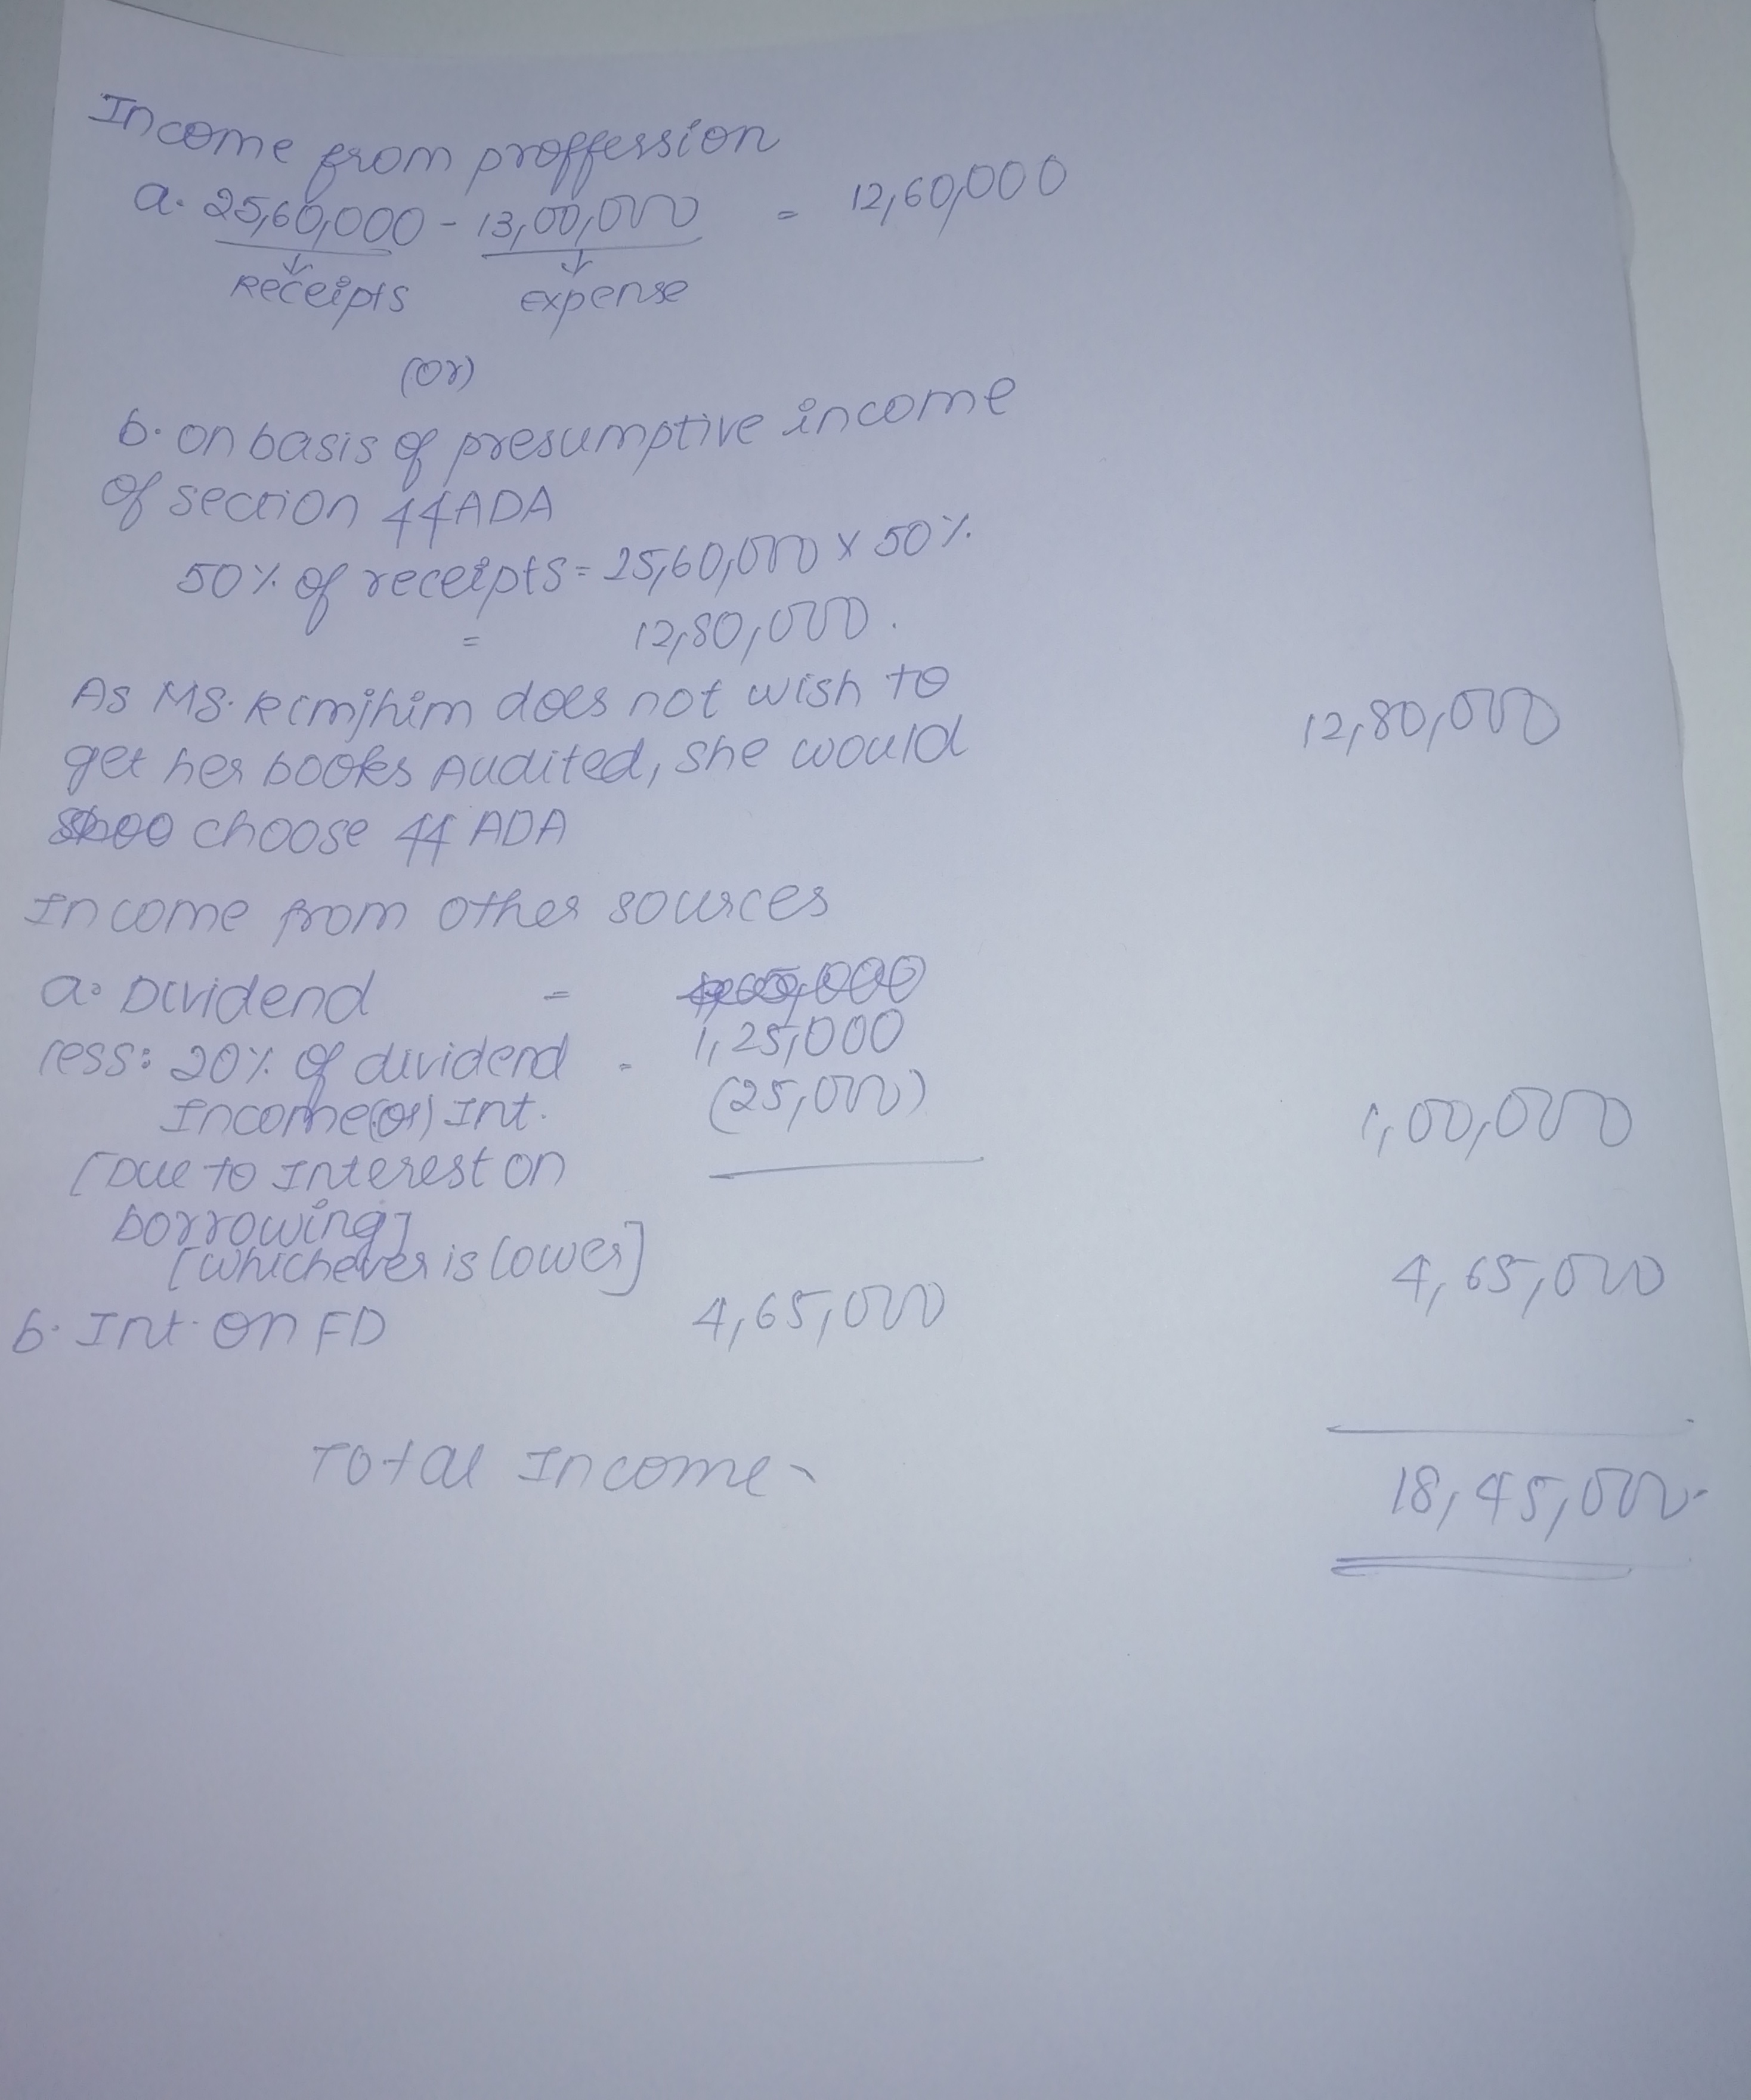 Income from proffession
a. 25,60,000 - 13,00,000 = 12,60,000
Receipts expense
(Or)
b. on basis of presumptive income
of section 44ADA
50% of receipts = 25,60,000 x 50%
= 12,80,000.
As MS. Rimjhim does not wish to
get her books Audited, she would 12,80,000
choose 44 ADA
Income from other sources
a. Dividend =
1,25,000
less: 20% of dividend -
Income(or) Int. (25,000) 1,00,000
[Due to Interest on
borrowing]
[whichever is lower]
b. Int. on FD 4,65,000 4,65,000
Total Income - 18,45,000